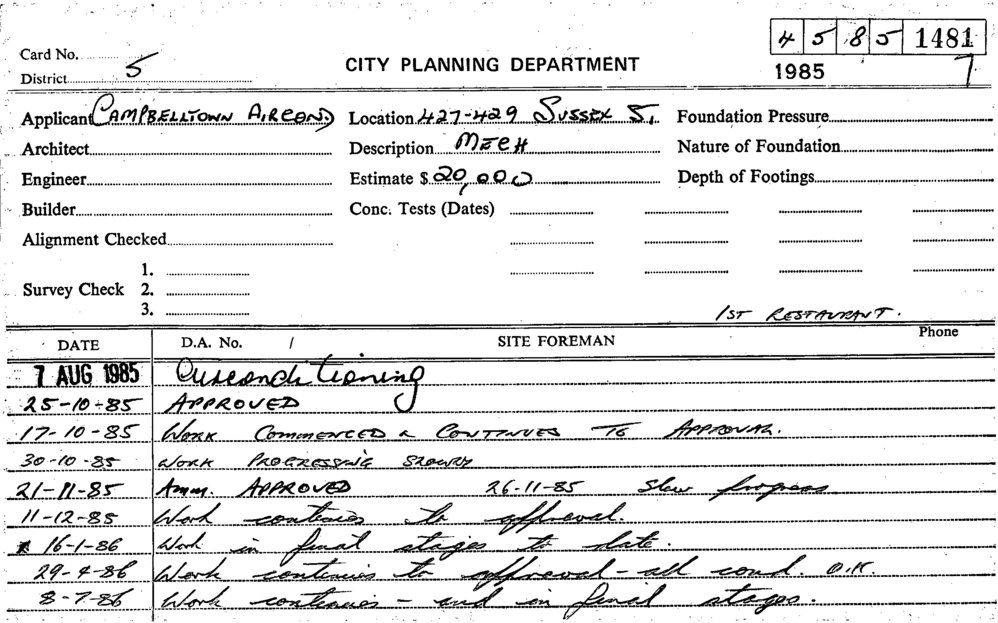 4 5 8 5 1481
Card No.
District 5
CITY PLANNING DEPARTMENT
1985 7
Applicant CAMPBELLTOWN AIRCOND Location 427-429 SUSSEX S. Foundation Pressure
Architect Description MECH Nature of Foundation
Engineer Estimate $ 20,000 Depth of Footings
Builder Conc. Tests (Dates)
Alignment Checked
1.
Survey Check 2.
3.
1ST RESTAURANT.
DATE D.A. No. / SITE FOREMAN Phone
7 AUG 1985 Airconditioning
25-10-85 APPROVED
17-10-85 WORK COMMENCED & CONTINUES TO APPROVAL.
30-10-85 WORK PROGRESSING SLOWLY
21-11-85 Amm. APPROVED 26-11-85 Slow progress
11-12-85 Work continues to approval.
16-1-86 Work in final stages to date.
29-4-86 Work continues to approval - all cond. O.K.
8-7-86 Work continues - and in final stages.